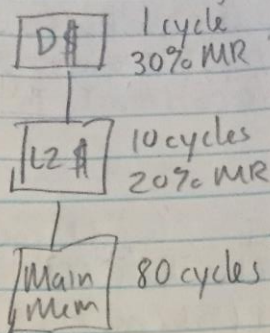 D$ 1 cycle
30% MR
L2 $ 10 cycles
20% MR
Main 80 cycles
Mem